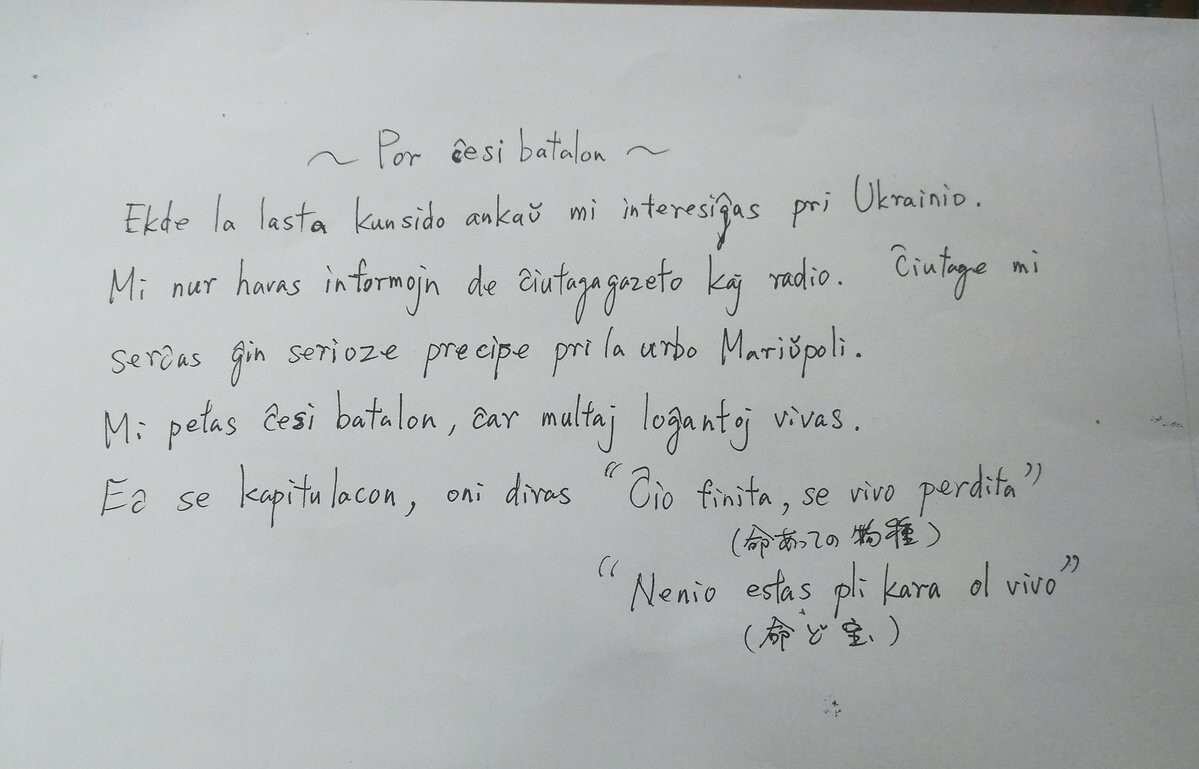 ～ Por ĉesi batalon ～
Ekde la lasta kunsido ankaŭ mi interesiĝas pri Ukrainio.
Mi nur havas informojn de ĉiutagagazeto kaj radio. Ĉiutage mi
serĉas ĝin serioze precipe pri la urbo Mariŭpoli.
Mi petas ĉesi batalon, ĉar multaj loĝantoj vivas.
Eĉ se kapitulacon, oni divas “Ĉio finita, se vivo perdita”
(命あっての物種)
“Nenio estas pli kara ol vivo”
(命ど宝、)